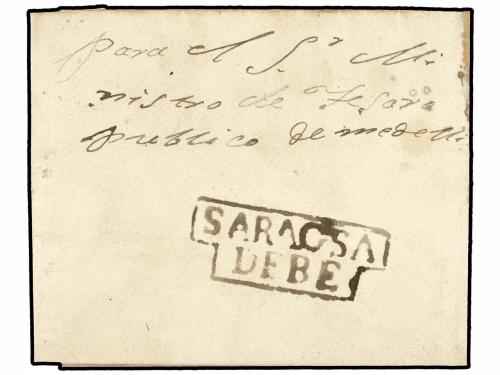 Para el S.r Mi-
nistro de Tesoro
publico de medelli
SARAGSA
DEBE